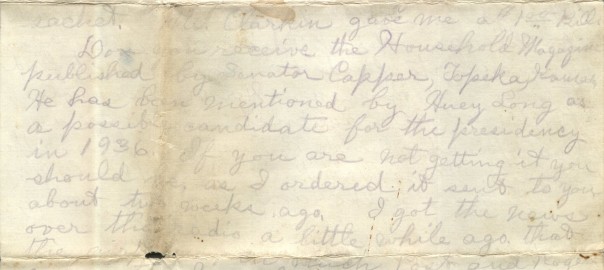 teacher. Mr. gave me a
Do you receive the Household Magazine
published by Senator Capper, Topeka, Kansas
He has been mentioned by Huey Long as
a possible candidate for the presidency
in 1936. If you are not getting it you
should be, as I ordered it sent to you
about two weeks ago. I got the news
over the radio a little while ago that
the